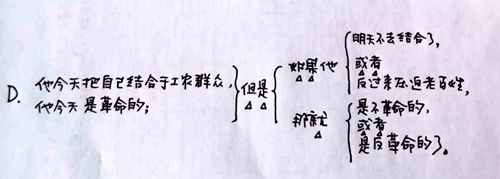 D.
他今天把自己结合于工农群众,
他今天是革命的;
但是
如果他
明天不去结合了,
或者
反过来压迫老百姓,
那就
是不革命的,
或者
是反革命的了。